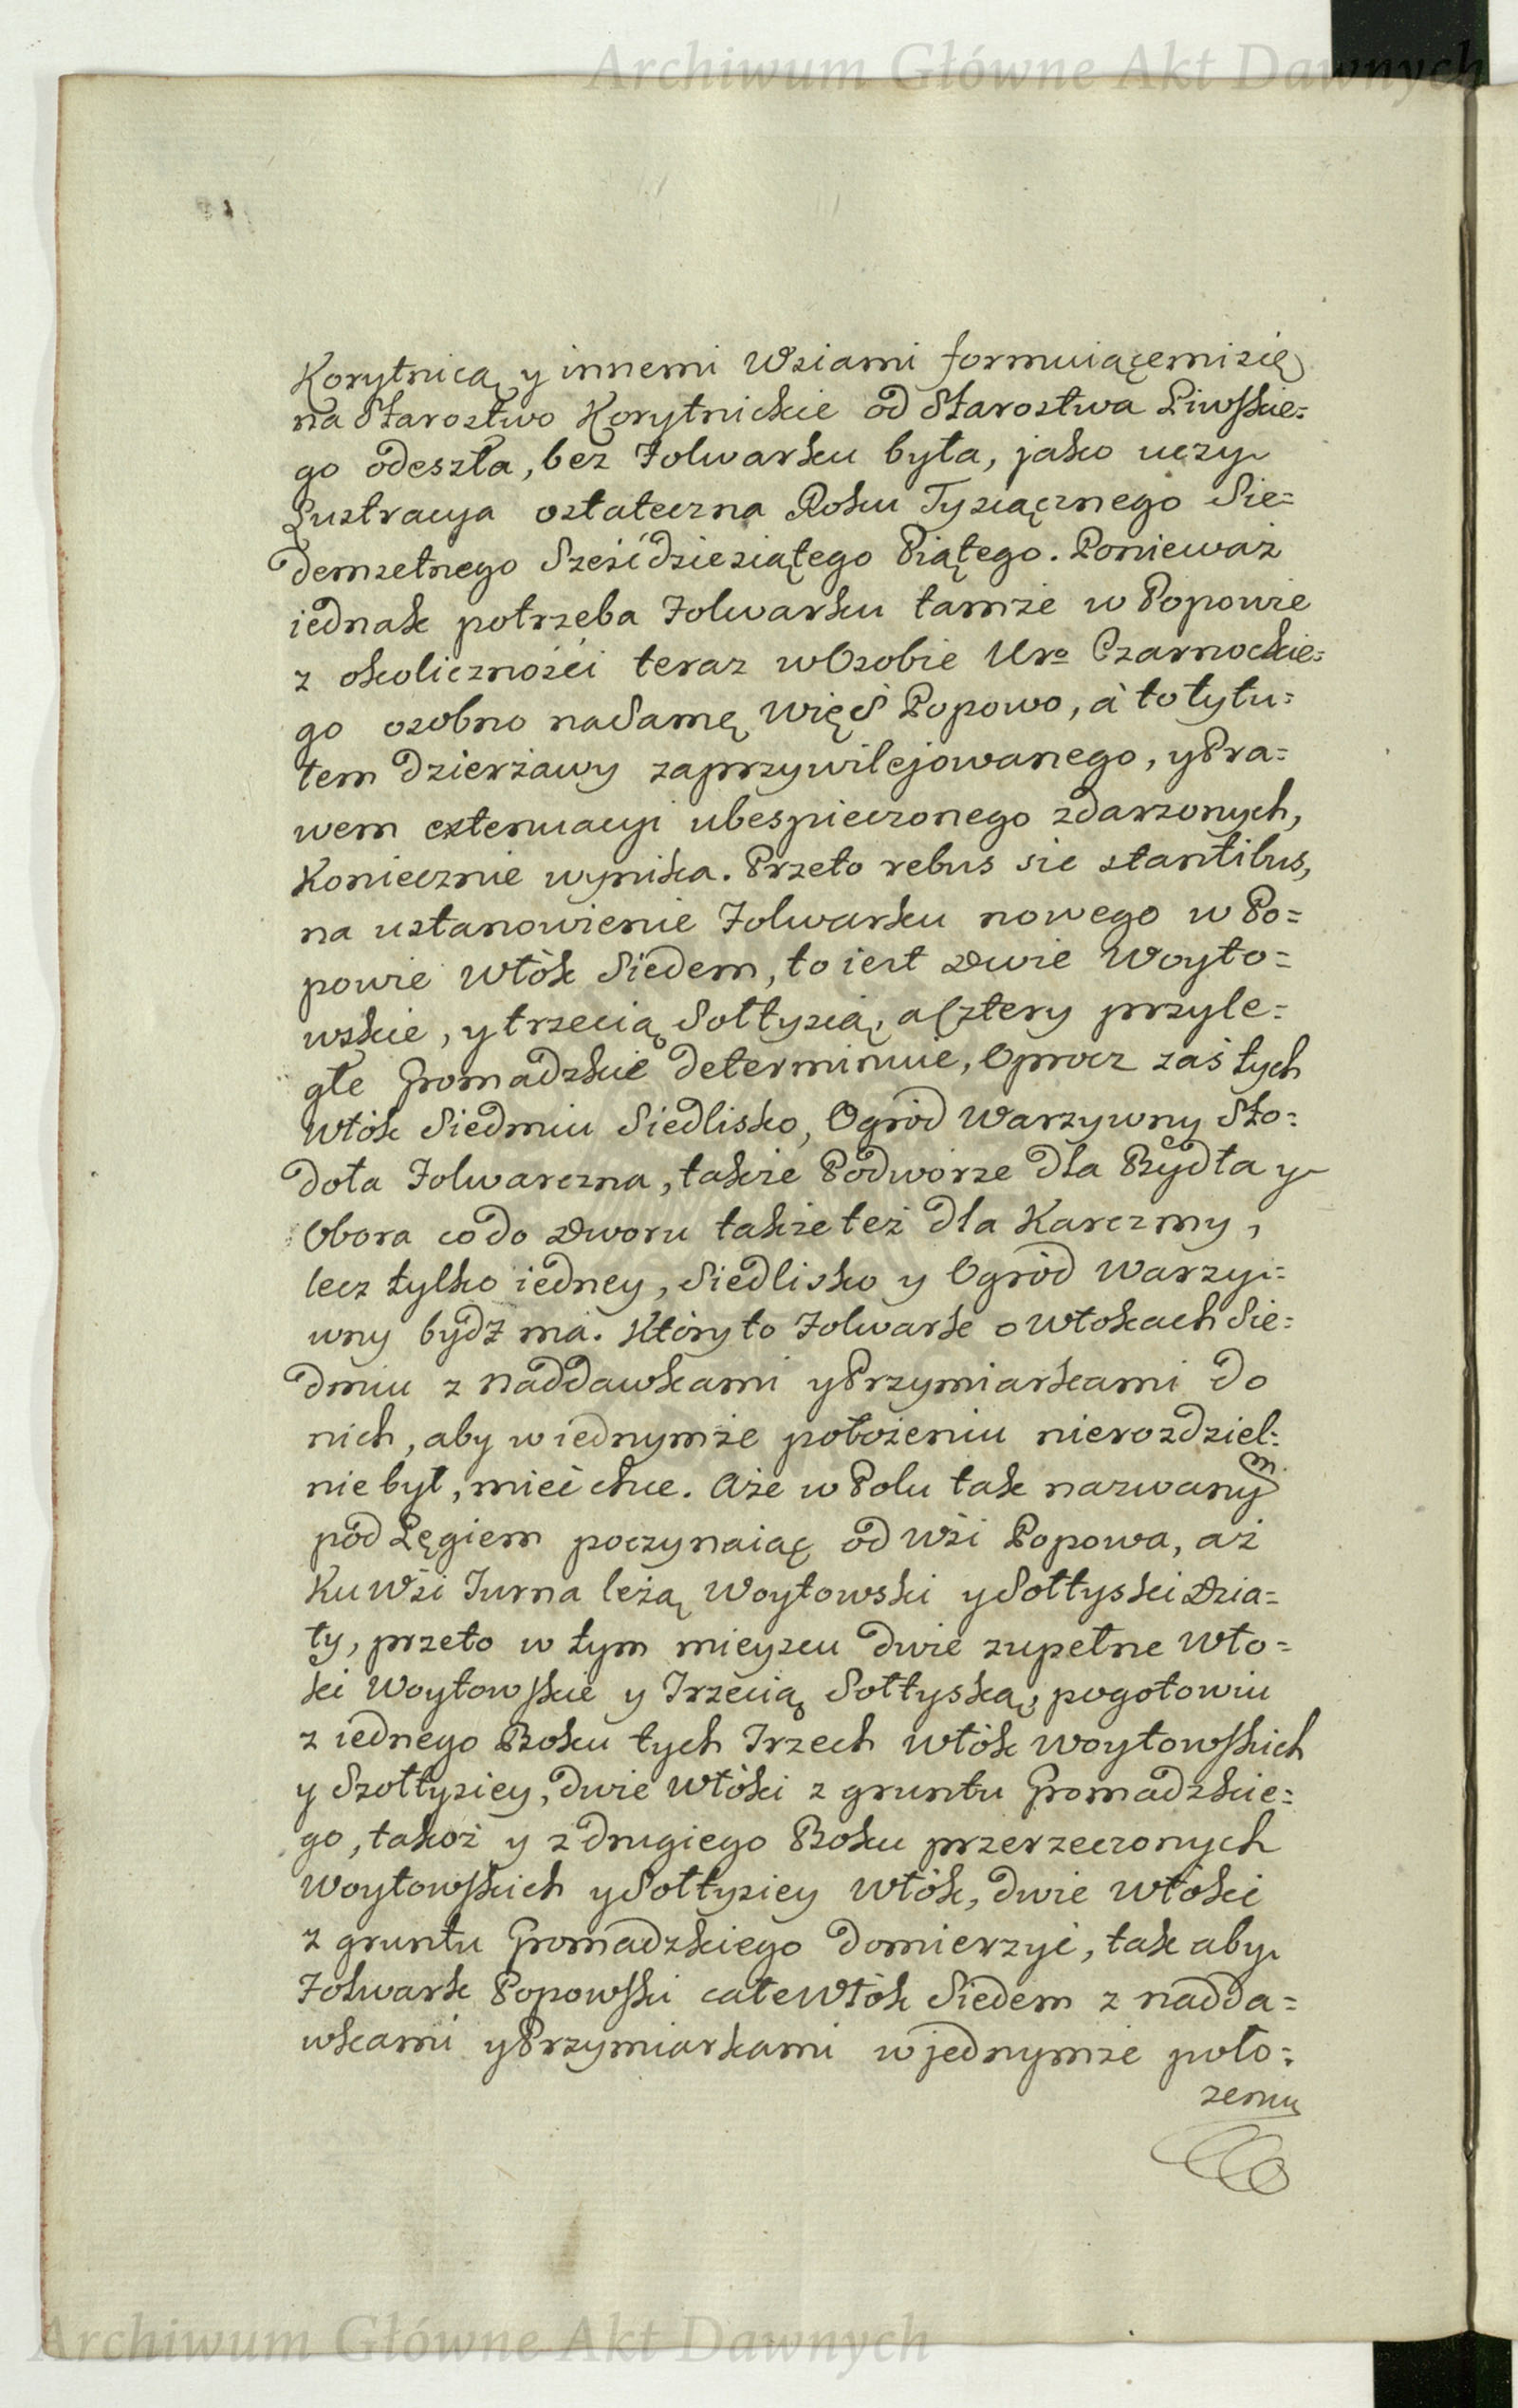 Archiwum Główne Akt Dawnych
Korytnicą y innemi Wsiami formuiącemi się
na Starostwo Korytnickie od Starostwa Liwskie=
go odeszła, bez Folwarku była, jako uczy
Lustracya ostateczna Roku Tysiącznego Sie=
demsetnego Sześćdziesiątego Piątego. Ponieważ
iednak potrzeba Folwarku tamże w Popowie
z okoliczności teraz w Osobie Uro Czarnockie=
go osobno na Samę Więś Popowo, à to tytu=
łem Dzierżawy zaprzywilejowanego, y Pra=
wem extenuacyi ubespieczonego zdarzonych,
Koniecznie wynika. Przeto rebus sic stantibus,
na ustanowienie Folwarku nowego w Po=
powie Włók Siedem, to iest Dwie Woyto=
wskie, y trzecią Sołtysią, a Cztery przyle=
głe Gromadzkie determinuie, Oprocz zaś tych
Włók Siedmiu Siedlisko, Ogród Warzywny Sto=
doła Folwarczna, także Podworze dla Bydła y
Obora co do Dworu także też dla Karczmy,
lecz tylko iedney, Siedlisko y Ogród Warzy=
wny bydź ma. Który to Folwark o Włokach Sie=
dmiu z naddawkami y Przymiarkami do
nich, aby w iednymże położeniu nierozdziel=
nie był, mieć chce. Aże w Polu tak nazwanym
pod Lęgiem poczynaiąc od Wsi Popowa, aż
Ku Wsi Turna leżą Woytowski y Sołtyski Dzia=
ły, przeto w tym mieyscu dwie zupełne Wło=
ki Woytowskie y Trzecią Sołtyską, pogotowiu
z iednego Boku tych Trzech Włók Woytowskich
y Szołtysiey, dwie Włóki z gruntu Gromadzkie=
go, takoż y z drugiego Boku przerzeczonych
Woytowskich y Sołtysiey Włók, dwie Włóki
z gruntu Gromadzkiego domierzyć, tak aby
Folwark Popowski całe Włók Siedem z nadda=
wkami y Przymiarkami w jednymże poło=
żeniu
Archiwum Główne Akt Dawnych